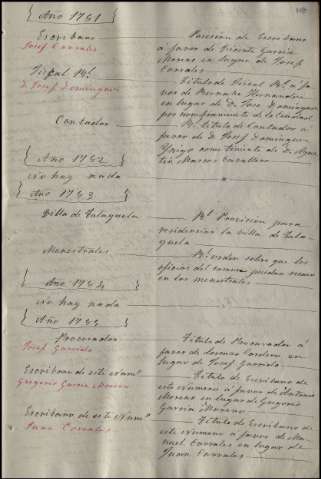 { Año 1741 }
Escribano
Josef Corrales
Provision de Escribano
á favor de Vicente Garcia
Moreno en lugar de Josef
Corrales
Fiscal Rl.
D. Josef Dominguez
Titulo de Fiscal Rl. á fa-
vor de Bernardo Hernandez
en lugar de D. Jose Dominguez
por nombramiento de la Ciudad
Contador
Rl. titulo de Contador á
favor de D. Josef Dominguez
{ Año 1742 }
No hay nada
{ Año 1743
Villa de Talayuela
Rl. Provision para
residenciar la villa de Tala-
yuela
Menestrales
Rl. orden sobre que los
en los menestrales
{ Año 1744 }
No hay nada
{ Año 1745 }
Procurador
Josef Garrido
Titulo de Procurador á
favor de Tomas Cordero en
lugar de Josef Garrido
Escribano de este Numo.
Gregorio Garcia Moreno
Titulo de Escribano de
este número á favor de Antonio
Moreno en lugar de Gregorio
Garcia Moreno
Escribano de este Numo.
Juan Corrales
Titulo de Escribano de
este número á favor de Ma-
nuel Corrales en lugar de
Juan Corrales